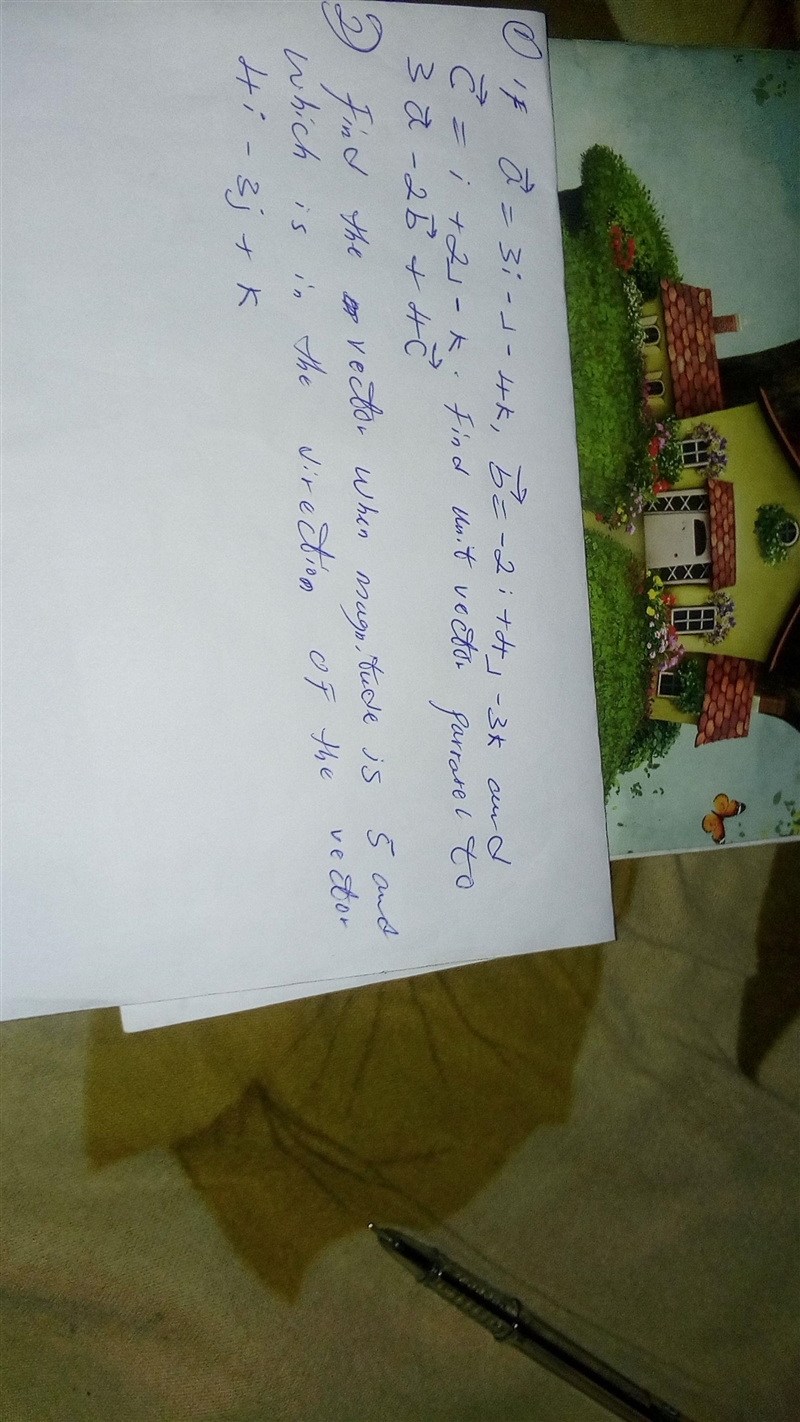 ① If a⃗ = 3i - J - 4k, b⃗ = -2i + 4J - 3k and
c⃗ = i + 2J - k. Find unit vector parrarel to
3a⃗ - 2b⃗ + 4c⃗
2) Find the vector when magnitude is 5 and
which is in the direction of the vector
4i - 3j + k